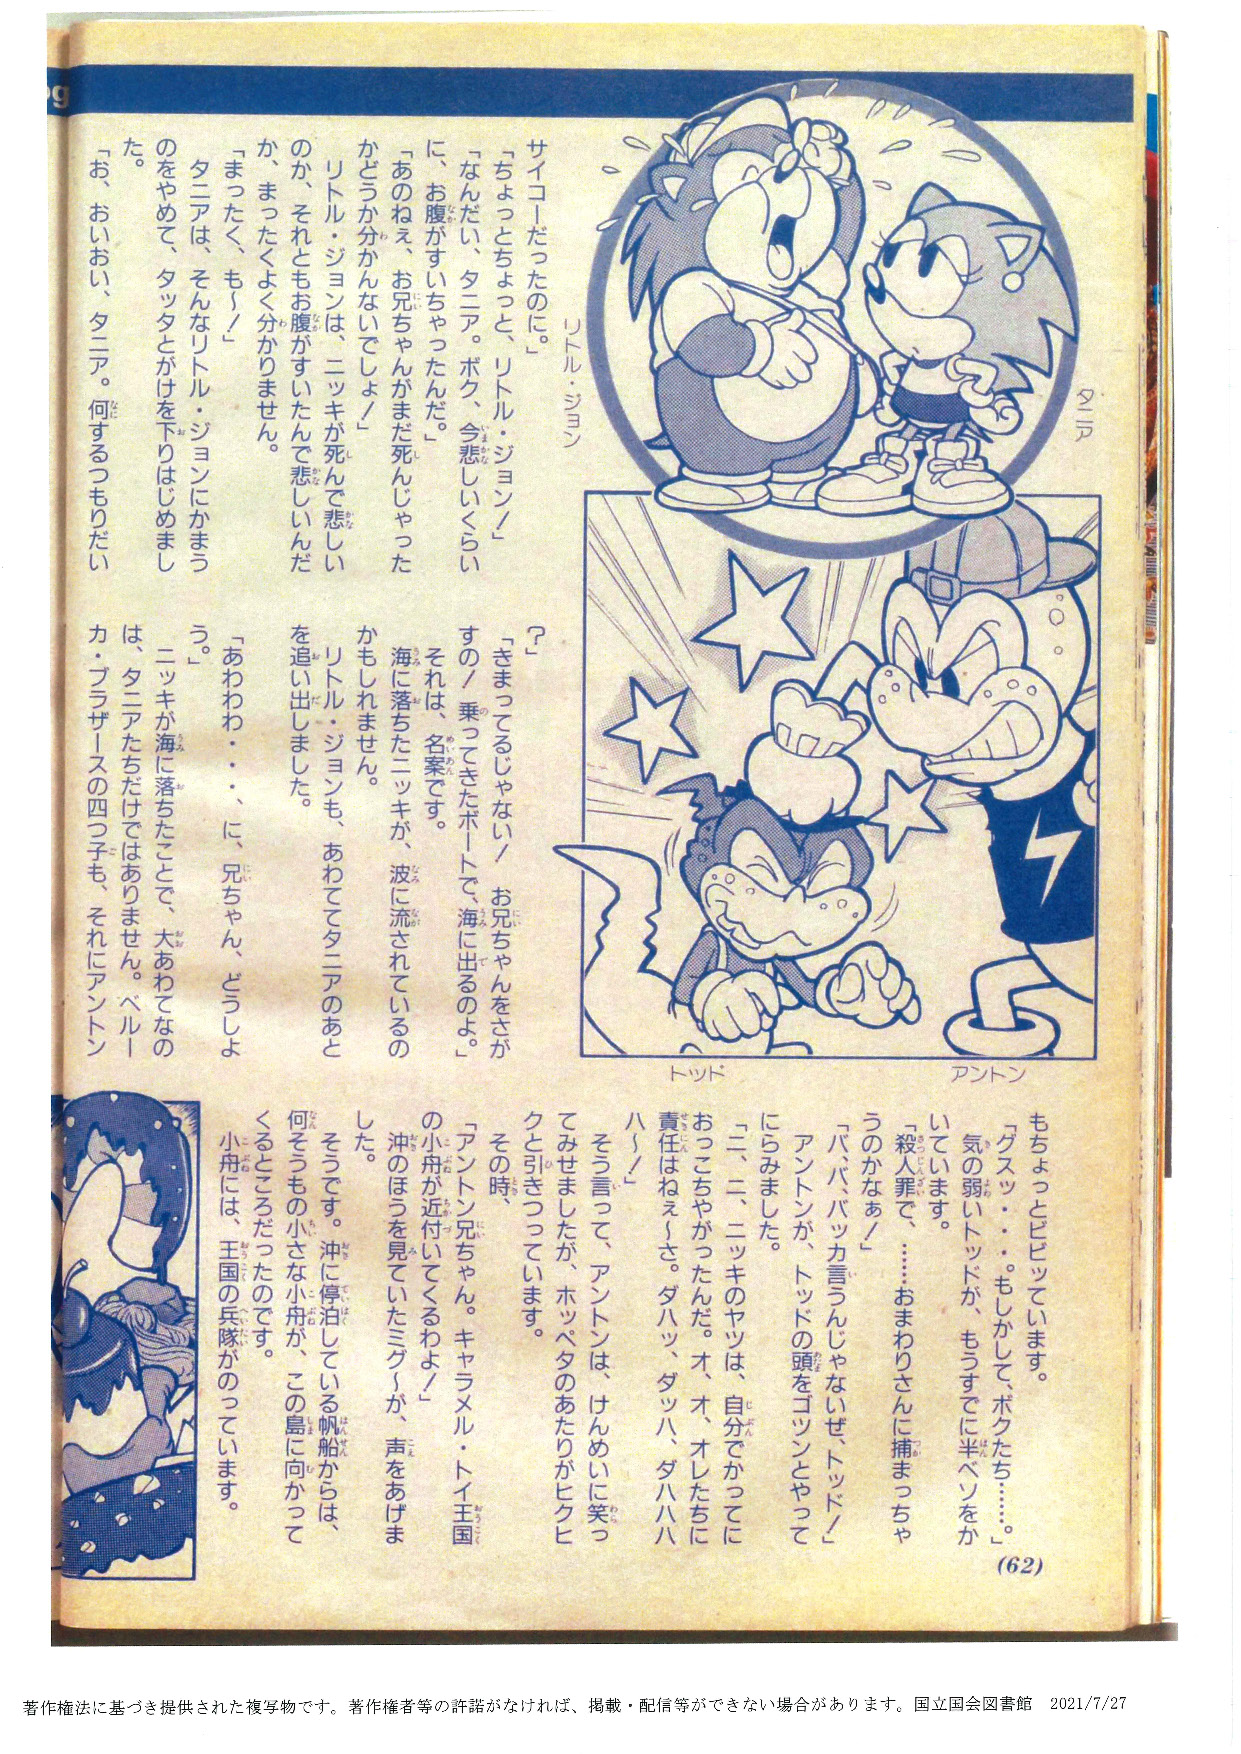 og
サイコーだったのに。」
「ちょっとちょっと、リトル・ジョン！」
「なんだい、タニア。ボク、今悲しいくらい
に、お腹がすいちゃったんだ。」
「あのねぇ、お兄ちゃんがまだ死んじゃった
かどうか分かんないでしょ！」
リトル・ジョンは、ニッキが死んで悲しい
のか、それともお腹がすいたんで悲しいんだ
か、まったくよく分かりません。
「まったく、も〜！」
タニアは、そんなリトル・ジョンにかまう
のをやめて、タッタとがけを下りはじめまし
た。
「お、おいおい、タニア。何するつもりだい
リトル・ジョン
タニア
？」
「きまってるじゃない！　お兄ちゃんをさが
すの！　乗ってきたボートで、海に出るのよ。」
それは、名案です。
海に落ちたニッキが、波に流されているの
かもしれません。
リトル・ジョンも、あわててタニアのあと
を追い出しました。
「あわわわ・・・、に、兄ちゃん、どうしよ
う。」
ニッキが海に落ちたことで、大あわてなの
は、タニアたちだけではありません。ベルー
カ・ブラザースの四つ子も、それにアントン
トッド
アントン
もちょっとビビッています。
「グスッ・・・。もしかして、ボクたち……。」
気の弱いトッドが、もうすでに半ベソをか
いています。
「殺人罪で、……おまわりさんに捕まっちゃ
うのかなぁ！」
「バ、バ、バッカ言うんじゃないぜ、トッド！」
アントンが、トッドの頭をゴツンとやって
にらみました。
「ニ、ニ、ニッキのヤツは、自分でかってに
おっこちやがったんだ。オ、オ、オレたちに
責任はねぇ〜さ。ダハッ、ダッハ、ダハハハ
ハ〜！」
そう言って、アントンは、けんめいに笑っ
てみせましたが、ホッペタのあたりがヒクヒ
クと引きつっています。
その時、
「アントン兄ちゃん。キャラメル・トイ王国
の小舟が近付いてくるわよ！」
沖のほうを見ていたミグ〜が、声をあげま
した。
そうです。沖に停泊している帆船からは、
何そうもの小さな小舟が、この島に向かって
くるところだったのです。
小舟には、王国の兵隊がのっています。
(62)
著作権法に基づき提供された複写物です。著作権者等の許諾がなければ、掲載・配信等ができない場合があります。国立国会図書館　2021/7/27